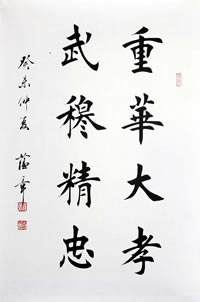 重華大孝
武穆精忠
癸未仲夏 蔭章